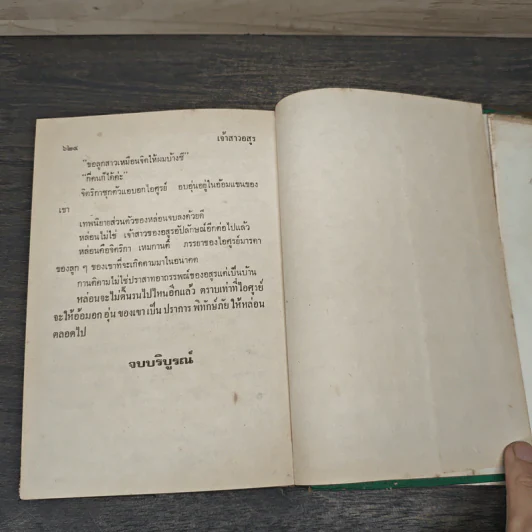 ๖๒๔ เจ้าสาวอสูร
"ขอลูกสาวเหมือนจิตให้ผมบ้างซี"
"กี่คนก็ได้ค่ะ"
จิตริกาซุกตัวแอบอกไอศูรย์ อบอุ่นอยู่ในอ้อมแขนของ
เขา
เทพนิยายส่วนตัวของหล่อนจบลงด้วยดี
หล่อนไม่ใช่ เจ้าสาวของอสูรอัปลักษณ์อีกต่อไปแล้ว
หล่อนคือจิตริกา เหมกานต์ ภรรยาของไอศูรย์มารดา
ของลูก ๆ ของเขาที่จะเกิดตามมาในอนาคต
กานติคามไม่ใช่ปราสาทอาถรรพณ์ของอสูรแต่เป็นบ้าน
หล่อนจะไม่ดิ้นรนไปไหนอีกแล้ว ตราบเท่าที่ไอศูรย์
จะให้อ้อมอก อุ่น ของเขา เป็น ปราการ พิทักษ์ภัย ให้หล่อน
ตลอดไป
จบบริบูรณ์